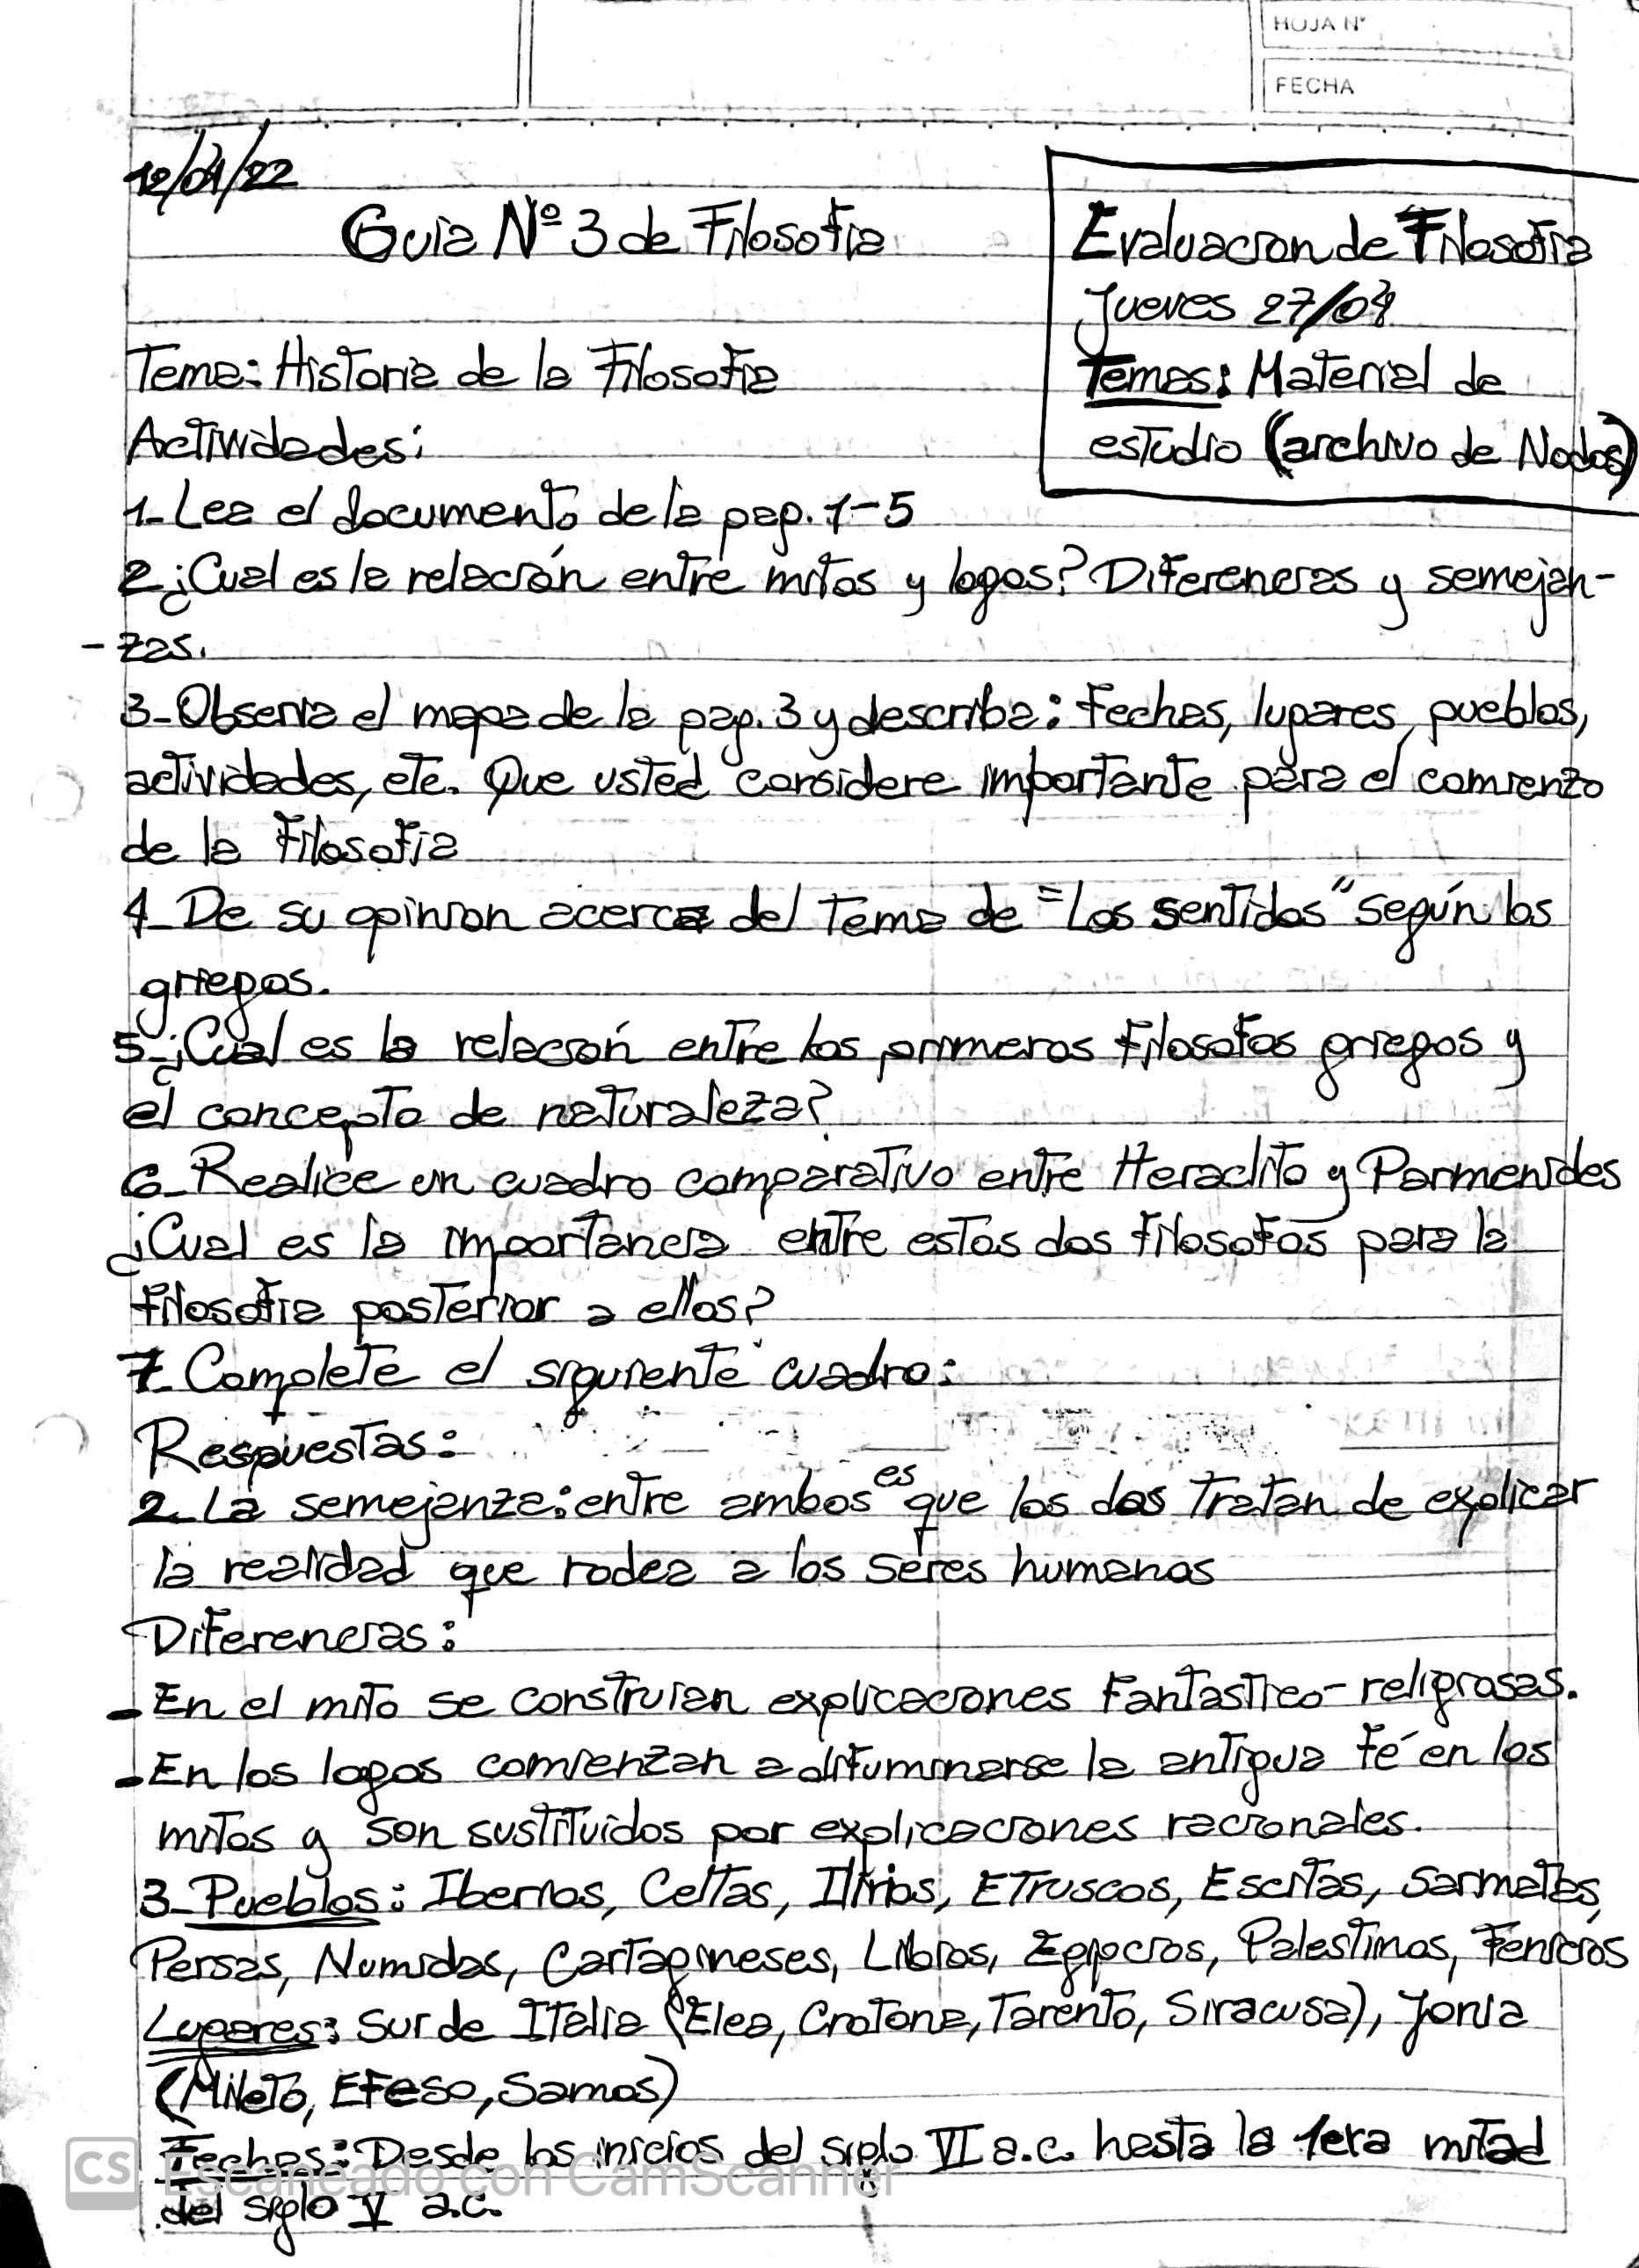 HOJA Nº
FECHA
12/04/22
Guia Nº 3 de Filosofia
Evaluacion de Filosofia
Jueves 27/04
Temas: Material de
estudio (archivo de Nodos)
Tema: Historia de la Filosofia
Actividades:
1- Lea el documento de la pag. 1-5
2- ¿Cual es la relación entre mitos y logos? Diferencias y semejan-
-zas.
3- Observa el mapa de la pag. 3 y describa: Fechas, lugares, pueblos,
actividades, etc. Que usted considere importante para el comienzo
de la Filosofia
4- De su opinion acerca del tema de "Los sentidos" según los
griegos.
5- ¿Cual es la relación entre los primeros filosofos griegos y
el concepto de naturaleza?
6- Realice un cuadro comparativo entre Heraclito y Parmenides
¿Cual es la importancia entre estos dos filosofos para la
filosofia posterior a ellos?
7- Complete el siguiente cuadro:
Respuestas:
2- La semejanza: entre ambos es que los dos tratan de explicar
la realidad que rodea a los seres humanos
Diferencias:
- En el mito se construian explicaciones fantastico-religiosas.
- En los logos comienzan a difuminarse la antigua fé en los
mitos y son sustituidos por explicaciones racionales.
3- Pueblos: Iberios, Celtas, Ilirios, Etruscos, Escitas, Sarmatas,
Persas, Numidas, Cartagineses, Libios, Egipcios, Palestinos, Fenicios
Lugares: Sur de Italia (Elea, Crotona, Tarento, Siracusa), Jonia
(Mileto, Efeso, Samos)
Fechas: Desde los inicios del siglo VI a.c. hasta la 1era mitad
del siglo V a.c.
CS Escaneado con CamScanner